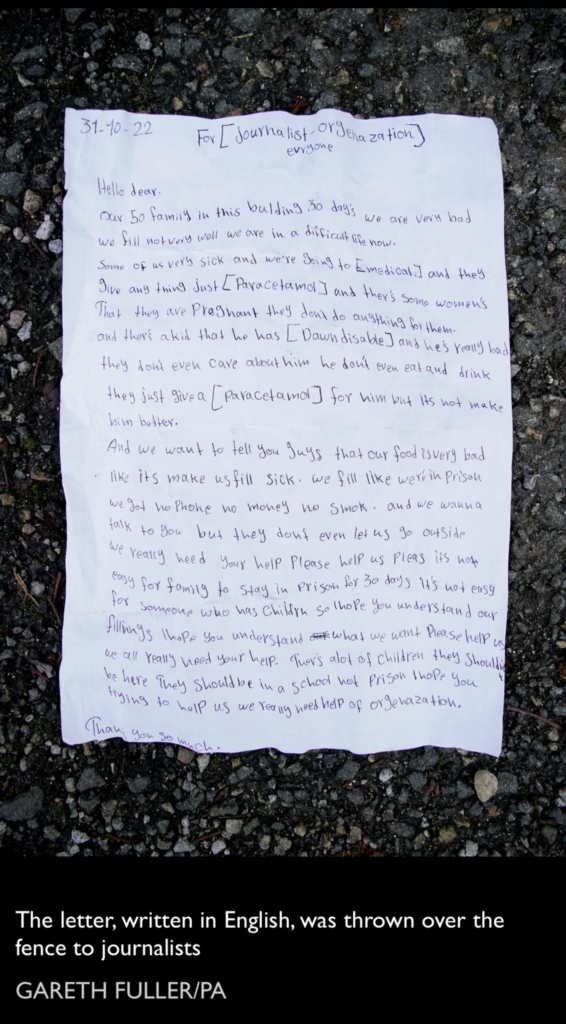 31-10-22
For [journalist-orgenazation]
evryone
Hello dear.
our 50 family in this bulding 30 day's we are very bad
we fill not very well we are in a difficult life now.
Some of us very sick and we're going to [medical] and they
give any thing Just [Paracetamol] and ther's some women's
That they are Pregnant they don't do anything for them.
and ther's a kid that he has [Dawn disable] and he's really bad
they don't even care about him he don't even eat and drink
they just give a [paracetamol] for him but its not make
him better.
And we want to tell you guys that our food is very bad
like its make us fill sick. we fill like we're in prison
we got no Phone no money no smok. and we wanna
talk to you but they dont even let us go outside
we really need your help Please help us Pleas its not
easy for family to stay in Prison for 30 days It's not easy
for someone who has Childrn so I hope you understand our
fillings I hope you understand what we want Please help us
we all really need your help. Ther's alot of children they Should't
be here They should be in a school not Prison I hope you
trying to help us we really need help of orgenazation.
Thank you So much.
The letter, written in English, was thrown over the
fence to journalists
GARETH FULLER/PA